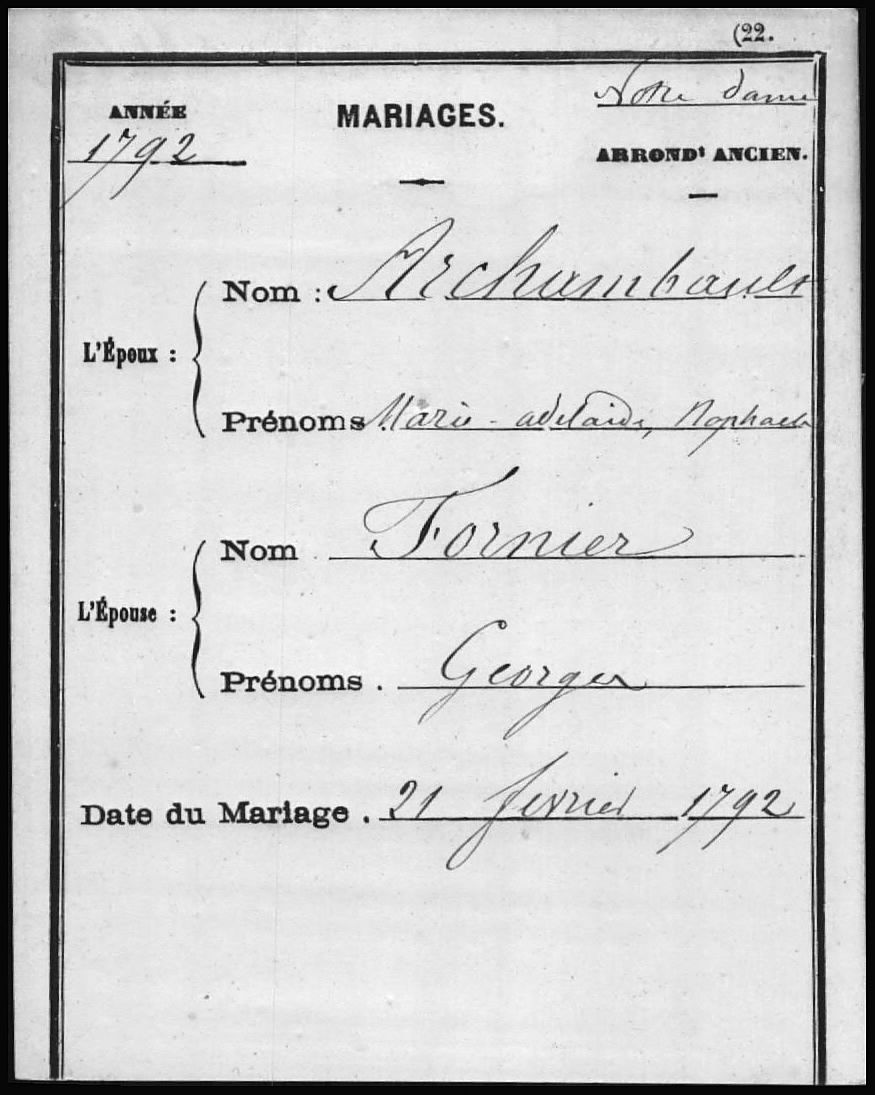 (22.
Notre dame
ANNÉE
1792
MARIAGES.
ARROND^t ANCIEN.
L'Époux :
Nom : Archambault
Prénoms Marie-adelaide, Raphaele
L'Épouse :
Nom Fornier
Prénoms . Georges
Date du Mariage . 21 fevrier 1792